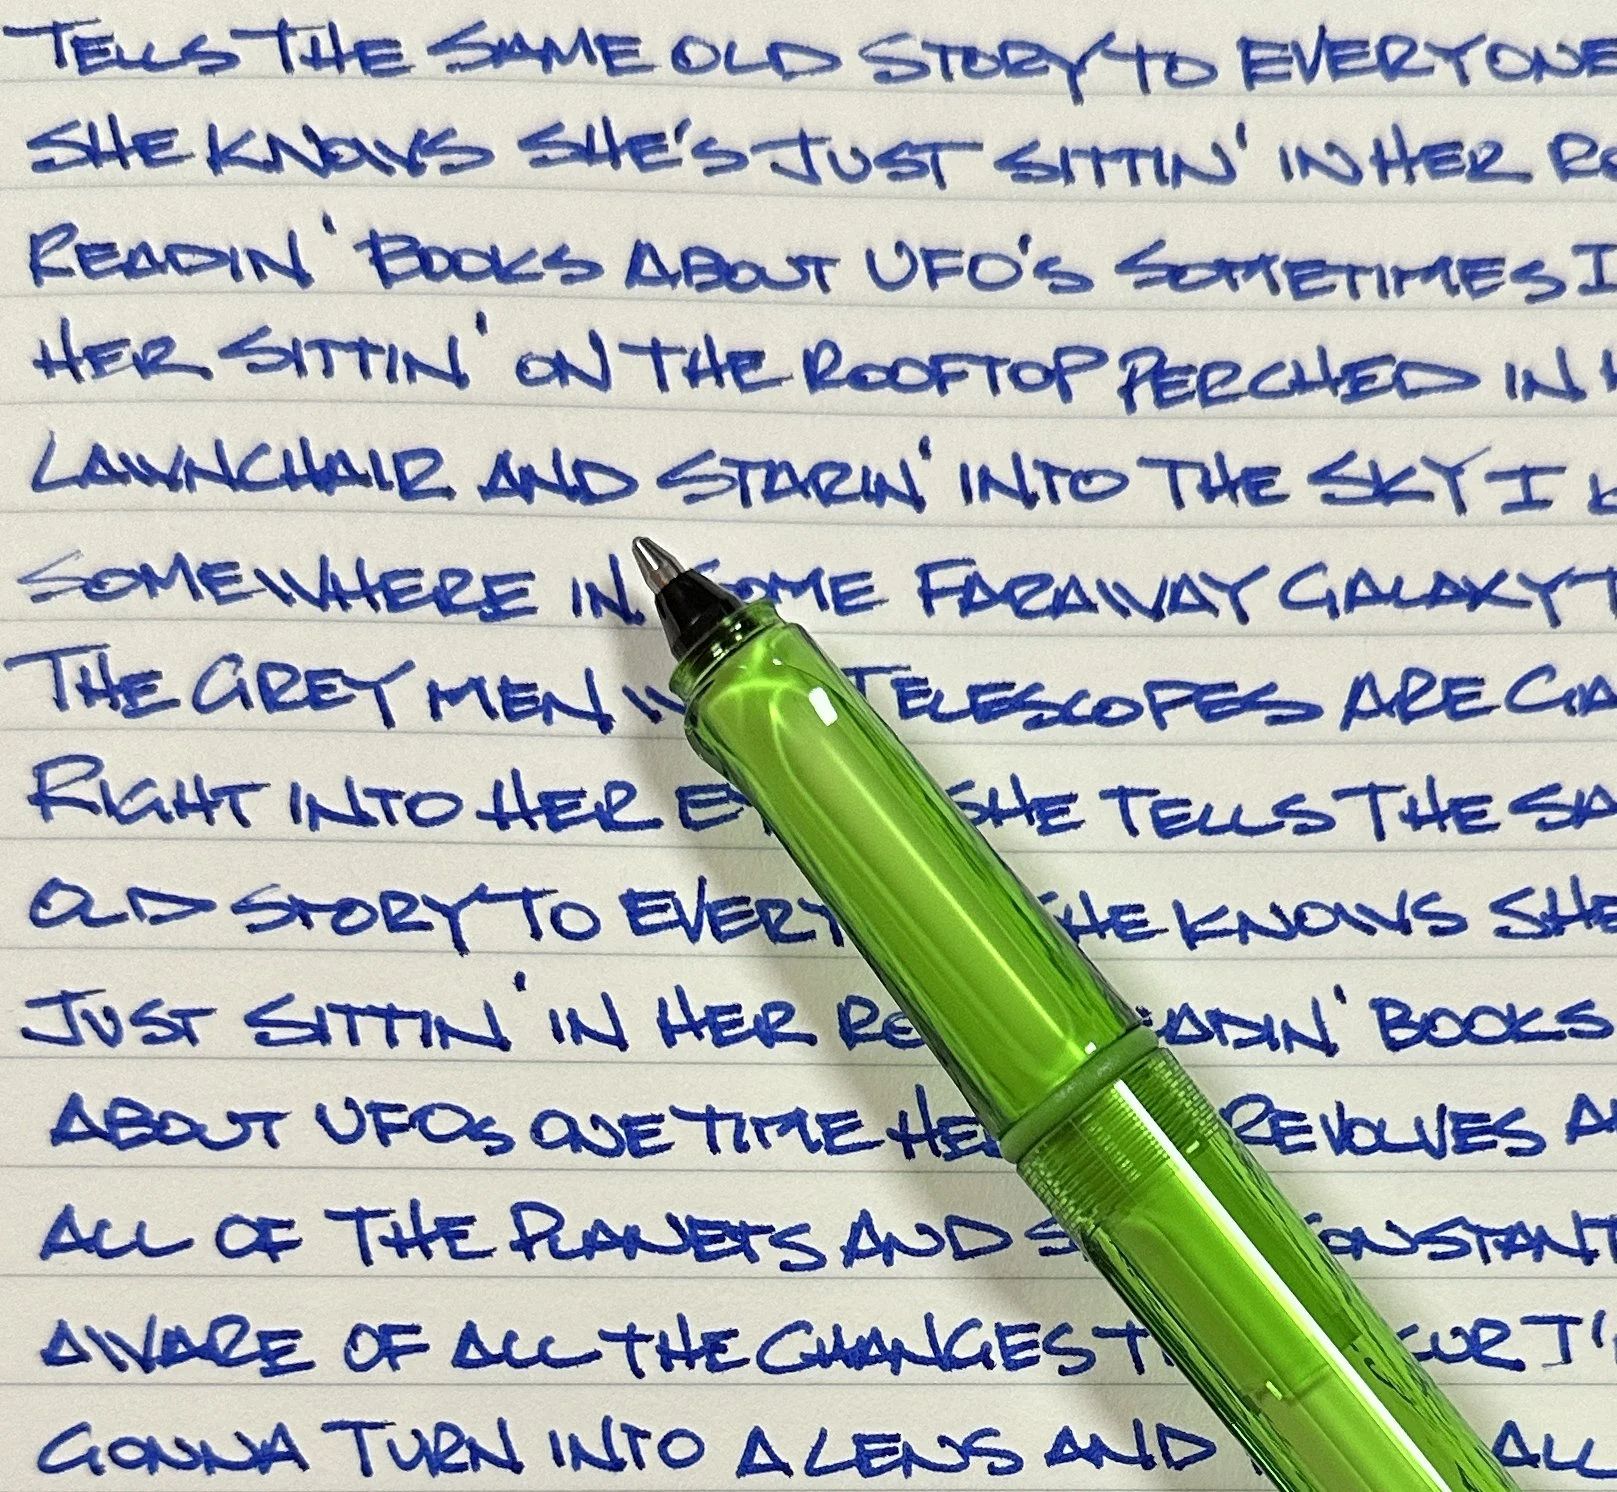 TELLS THE SAME OLD STORY TO EVERYONE
SHE KNOWS SHE'S JUST SITTIN' IN HER
READIN' BOOKS ABOUT UFO'S SOMETIMES I
HER SITTIN' ON THE ROOFTOP PERCHED IN
LAWNCHAIR AND STARIN' INTO THE SKY I
SOMEWHERE IN SOME FARAWAY GALAXY
THE GREY MEN TELESCOPES ARE
RIGHT INTO HER SHE TELLS THE
OLD STORY TO SHE KNOWS
JUST SITTIN' IN HER READIN' BOOKS
ABOUT UFOS ONE TIME REVOLVES
ALL OF THE PLANETS AND
AWARE OF ALL THE CHANGES
GONNA TURN INTO A LENS AND ALL